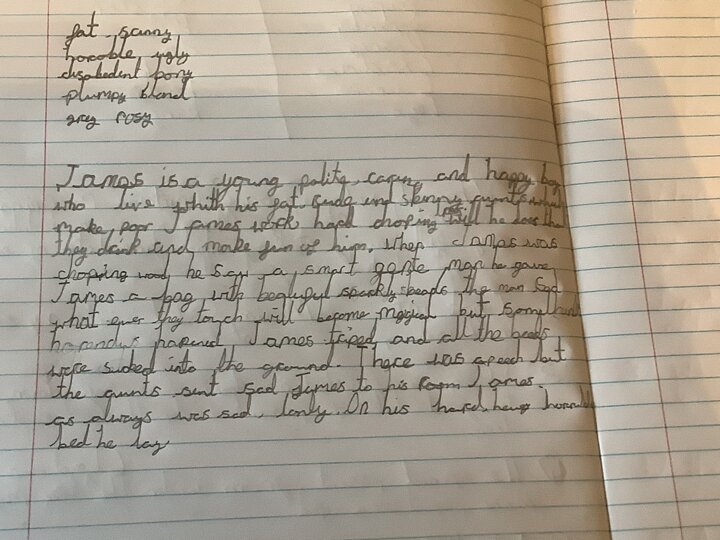 fat scinny
horoble, ugly
disobedent pony
plumpy bland
grey rosy
James is a young polite, caring and happy boy
who live whith his fat, rude and skinny aunts who
make poor James work hard choping he does that
they drink and make fun of him. When James was
choping wood he saw a smart gante man he gave
James a bag with beatyful sparkly beads the man sad
what ever they touch will become magical but somethin
harendus hapened, James triped and all the beeds
were sucked into the ground. There was a peech but
the aunts sent sad James to his room James
as always was sad, lonly. On his hard heavy horrable
bed he lay